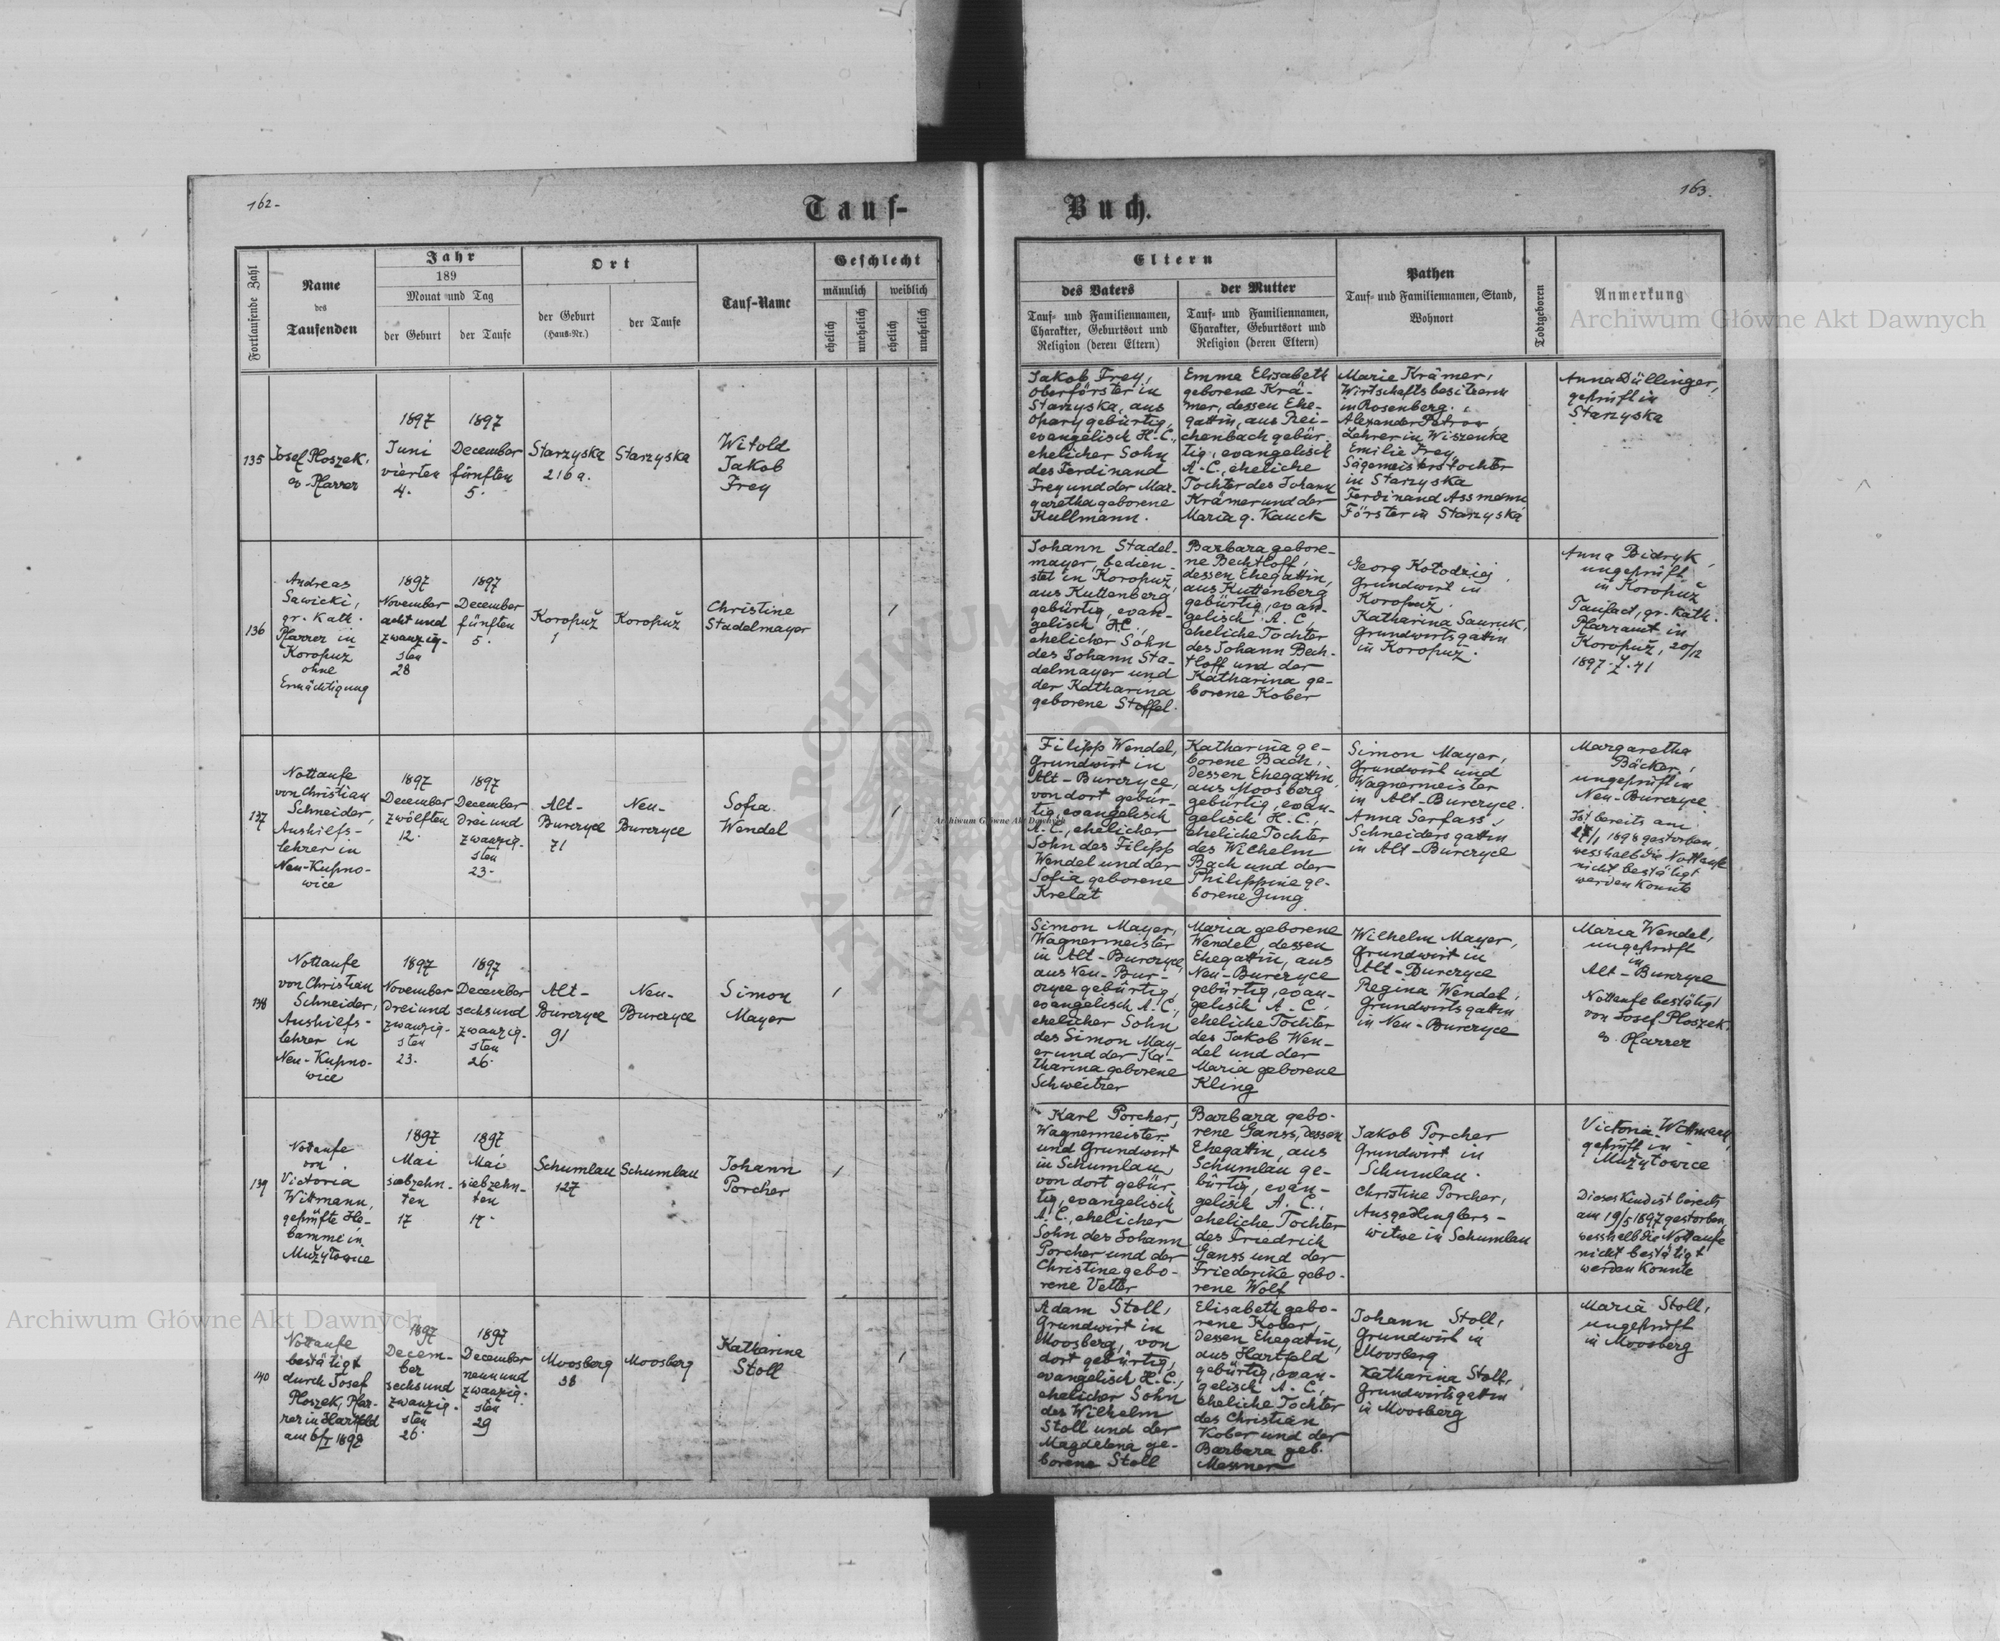 162.
Tauf-
Fortlaufende Zahl
Name
des
Taufenden
Jahr
189
Monat und Tag
der Geburt
der Taufe
Ort
der Geburt
(Haus-Nr.)
der Taufe
Tauf-Name
Geschlecht
männlich
weiblich
ehelich
unehelich
ehelich
unehelich
135
Josef Ploszek,
ev. Pfarrer
1897
Juni
vierten
4.
1897
December
fünften
5.
Starzyska
216a.
Starzyska
Witold
Jakob
Frey
136
Andreas
Sawicki,
gr. Kath.
Pfarrer in
Koropuž
ohne
Ermächtigung
1897
November
acht und
zwanzig-
sten
28
1897
December
fünften
5.
Koropuž
1
Koropuž
Christine
Stadelmayer
1
137
Nottaufe
von Christian
Schneider,
Aushilfs-
lehrer in
Neu-Kupno-
wice
1897
December
zwölften
12.
1897
December
drei und
zwanzig-
sten
23.
Alt-
Burczyce
71
Neu-
Burczyce
Sofia
Wendel
1
138
Nottaufe
von Christian
Schneider,
Aushilfs-
lehrer in
Neu-Kupno-
wice
1897
November
drei und
zwanzig-
sten
23.
1897
December
sechs und
zwanzig-
sten
26.
Alt-
Burczyce
91
Neu-
Burczyce
Simon
Mayer
1
139
Nottaufe
von
Victoria
Wittmann,
geprüfte He-
bamme in
Mužyłowice
1897
Mai
siebzehn-
ten
17
1897
Mai
siebzehn-
ten
17.
Schumlau
127
Schumlau
Johann
Porcher
1
140
Nottaufe
bestätigt
durch Josef
Ploszek, Pfar-
rer in Hartfeld
am 6/I 1898
1897
Decem-
ber
sechs und
zwanzig-
sten
26.
1897
December
neun und
zwanzig-
sten
29
Moosberg
38
Moosberg
Katharina
Stoll
1
163.
Buch.
Eltern
des Vaters
Tauf- und Familiennamen,
Charakter, Geburtsort und
Religion (deren Eltern)
der Mutter
Tauf- und Familiennamen,
Charakter, Geburtsort und
Religion (deren Eltern)
Pathen
Tauf- und Familiennamen, Stand,
Wohnort
Todtgeboren
Anmerkung
Jakob Frey,
Oberförster in
Starzyska, aus
Opary gebürtig,
evangelisch H.C.,
ehelicher Sohn
des Ferdinand
Frey und der Mar-
garetha geborene
Kullmann.
Emma Elisabeth
geborene Krä-
mer, dessen Ehe-
gattin, aus Rei-
chenbach gebür-
tig, evangelisch
A.C., eheliche
Tochter des Johann
Krämer und der
Maria g. Kauck
Marie Krämer,
Wirtschaftsbesitzerin
in Rosenberg.
Alexander Petrow,
Lehrer in Wiszenka
Emilie Frey,
Sägemeisterstochter
in Starzyska
Ferdinand Assmann
Förster in Starzyska
Anna Düllinger,
geprüft in
Starzyska
Johann Stadel-
mayer, bedien-
stet in Koropuž,
aus Kuttenberg
gebürtig, evan-
gelisch H.C.,
ehelicher Sohn
des Johann Sta-
delmayer und
der Katharina
geborene Stoffel.
Barbara gebore-
ne Bechtloff,
dessen Ehegattin,
aus Kuttenberg
gebürtig, evan-
gelisch A.C.,
eheliche Tochter
des Johann Bech-
tloff und der
Katharina ge-
borene Kober
Georg Kołodziej,
Grundwirt in
Koropuž.
Katharina Sauruk,
Grundwirtsgattin
in Koropuž.
Anna Bidryk,
ungeprüft
in Koropuž
Taufact, gr. Kath.
Pfarramt in
Koropuž, 20/12
1897. Z. 41
Filipp Wendel,
Grundwirt in
Alt-Burczyce,
von dort gebür-
tig, evangelisch
A.C., ehelicher
Sohn des Filipp
Wendel und der
Sofia geborene
Krelat
Katharina ge-
borene Bach,
dessen Ehegattin,
aus Moosberg
gebürtig, evan-
gelisch H.C.,
eheliche Tochter
des Wilhelm
Bach und der
Philippine ge-
borene Jung
Simon Mayer,
Grundwirt und
Wagnermeister
in Alt-Burczyce.
Anna Serfass,
Schneidersgattin
in Alt-Burczyce
Margaretha
Bäcker,
ungeprüft in
Neu-Burczyce
Ist bereits am
27/1 1898 gestorben,
wesshalb die Nottaufe
nicht bestätigt
werden konnte
Simon Mayer,
Wagnermeister
in Alt-Burczyce,
aus Neu-Bur-
czyce gebürtig,
evangelisch A.C.,
ehelicher Sohn
des Simon May-
er und der Ka-
tharina geborene
Schweitzer
Maria geborene
Wendel, dessen
Ehegattin, aus
Neu-Burczyce
gebürtig, evan-
gelisch A.C.,
eheliche Tochter
des Jakob Wen-
del und der
Maria geborene
Kling
Wilhelm Mayer,
Grundwirt in
Alt-Burczyce
Regina Wendel,
Grundwirtsgattin
in Neu-Burczyce
Maria Wendel,
ungeprüft
in
Alt-Burczyce
Nottaufe bestätigt
von Josef Ploszek,
ev. Pfarrer
Karl Porcher,
Wagnermeister
und Grundwirt
in Schumlau,
von dort gebür-
tig, evangelisch
A.C., ehelicher
Sohn des Johann
Porcher und der
Christine gebo-
rene Vetter
Barbara gebo-
rene Ganss, dessen
Ehegattin, aus
Schumlau ge-
bürtig, evan-
gelisch A.C.,
eheliche Tochter
des Friedrich
Ganss und der
Friederike gebo-
rene Wolf
Jakob Porcher
Grundwirt in
Schumlau.
Christine Porcher,
Ausgedinglers-
witwe in Schumlau
Victoria Wittmann,
geprüft in
Mužyłowice
Dieses Kind ist bereits
am 19/5 1897 gestorben,
wesshalb die Nottaufe
nicht bestätigt
werden konnte
Adam Stoll,
Grundwirt in
Moosberg, von
dort gebürtig,
evangelisch H.C.,
ehelicher Sohn
des Wilhelm
Stoll und der
Magdalena ge-
borene Stoll
Elisabeth gebo-
rene Kober,
dessen Ehegattin,
aus Hartfeld
gebürtig, evan-
gelisch A.C.,
eheliche Tochter
des Christian
Kober und der
Barbara geb.
Messner
Johann Stoll,
Grundwirt in
Moosberg
Katharina Stoll,
Grundwirtsgattin
in Moosberg
Maria Stoll,
ungeprüft
in Moosberg
Archiwum Główne Akt Dawnych
Archiwum Główne Akt Dawnych
Archiwum Główne Akt Dawnych